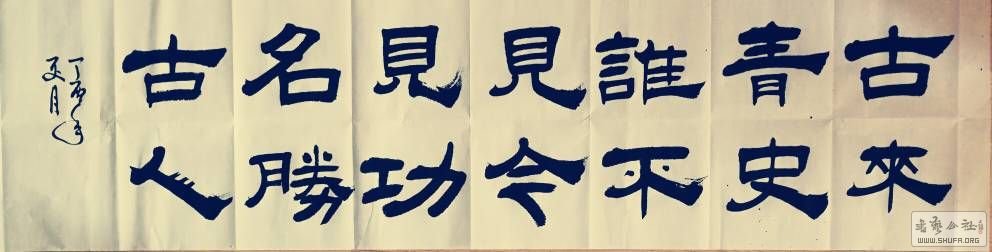 古來
青史
誰不
見今
見功
名勝
古人
丁酉年
夏月
书艺公社
WWW.SHUFA.ORG